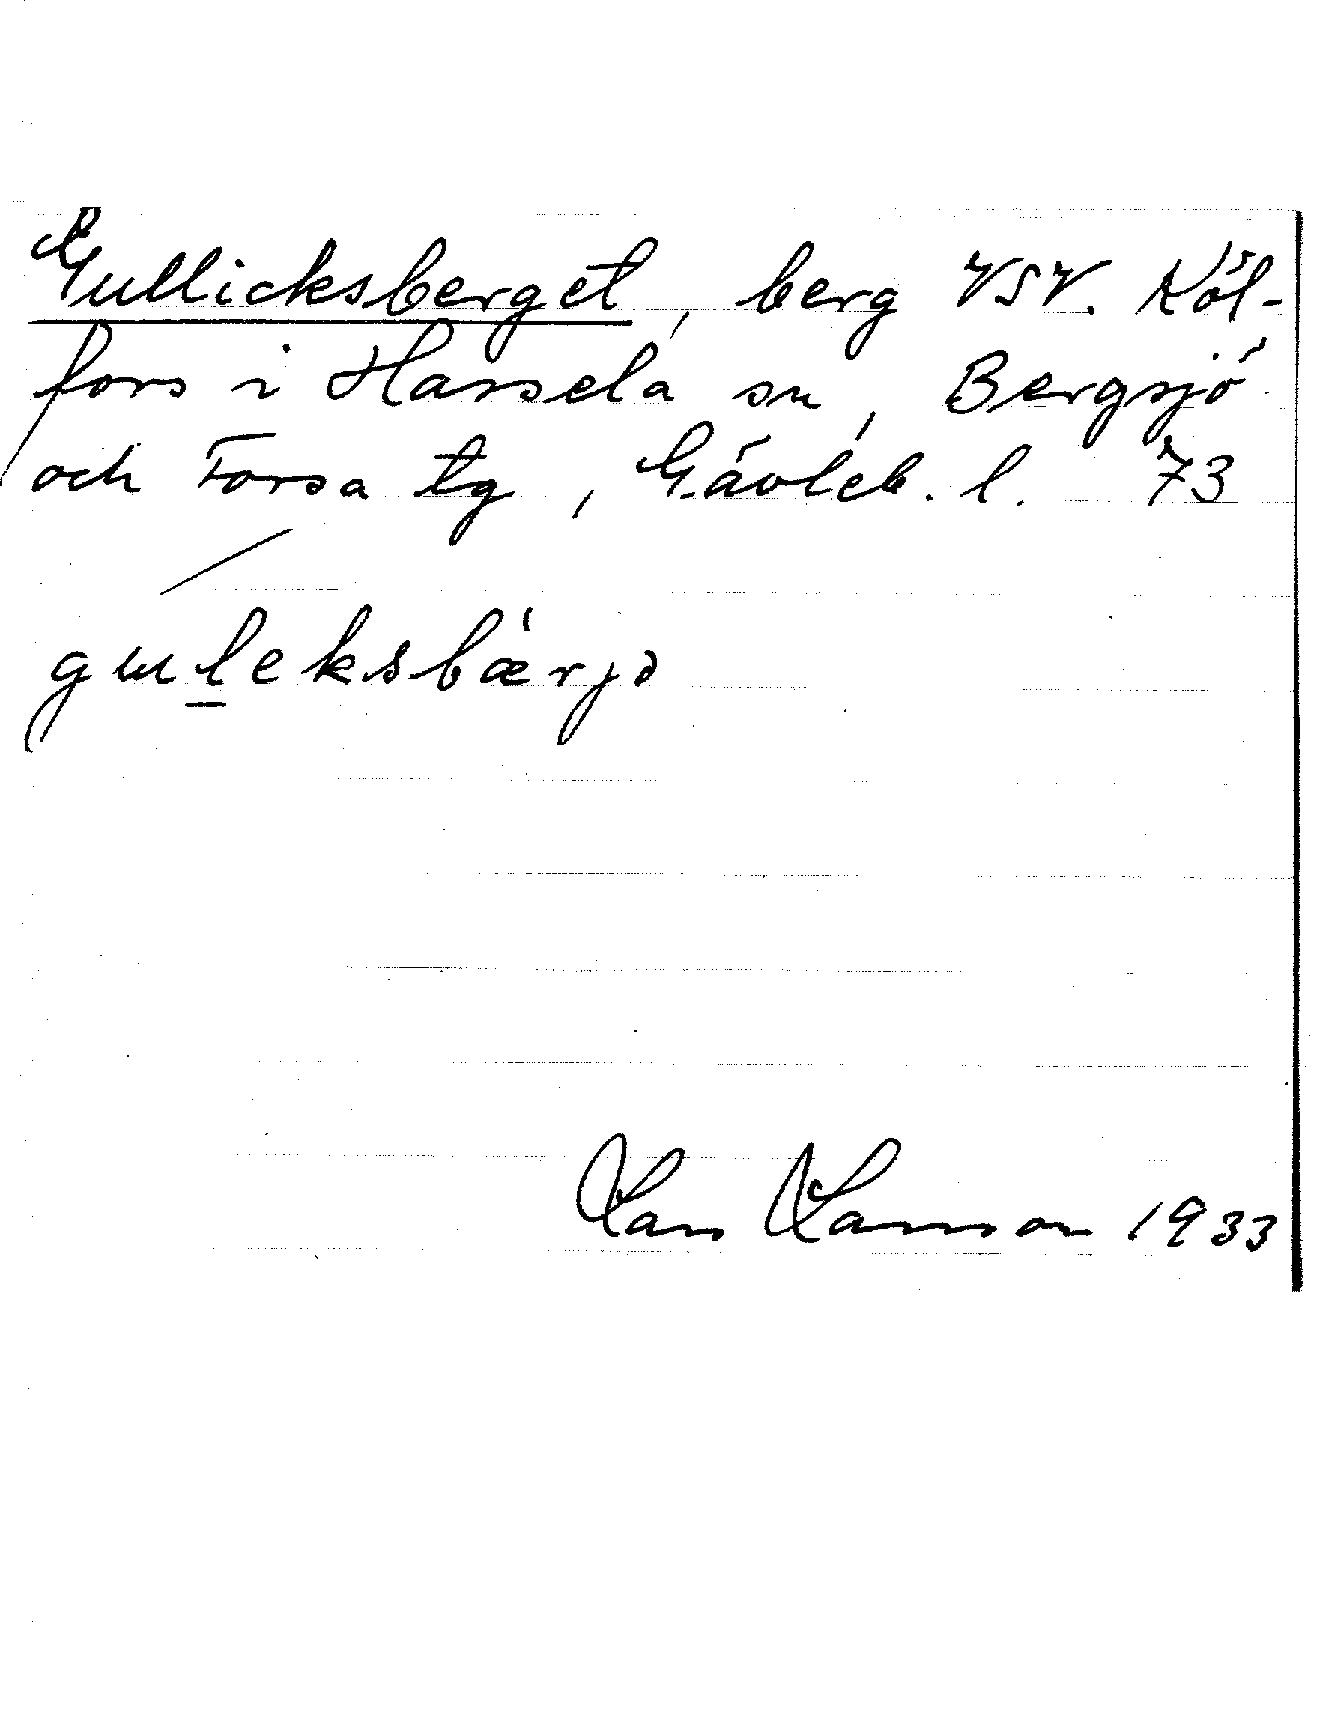 Gullicksberget, berg VSV. Köl-
fors i Hassela sn, Bergsjö
och Forsa tg, Gävleb. l. 73
gɯleksbærjə
1933